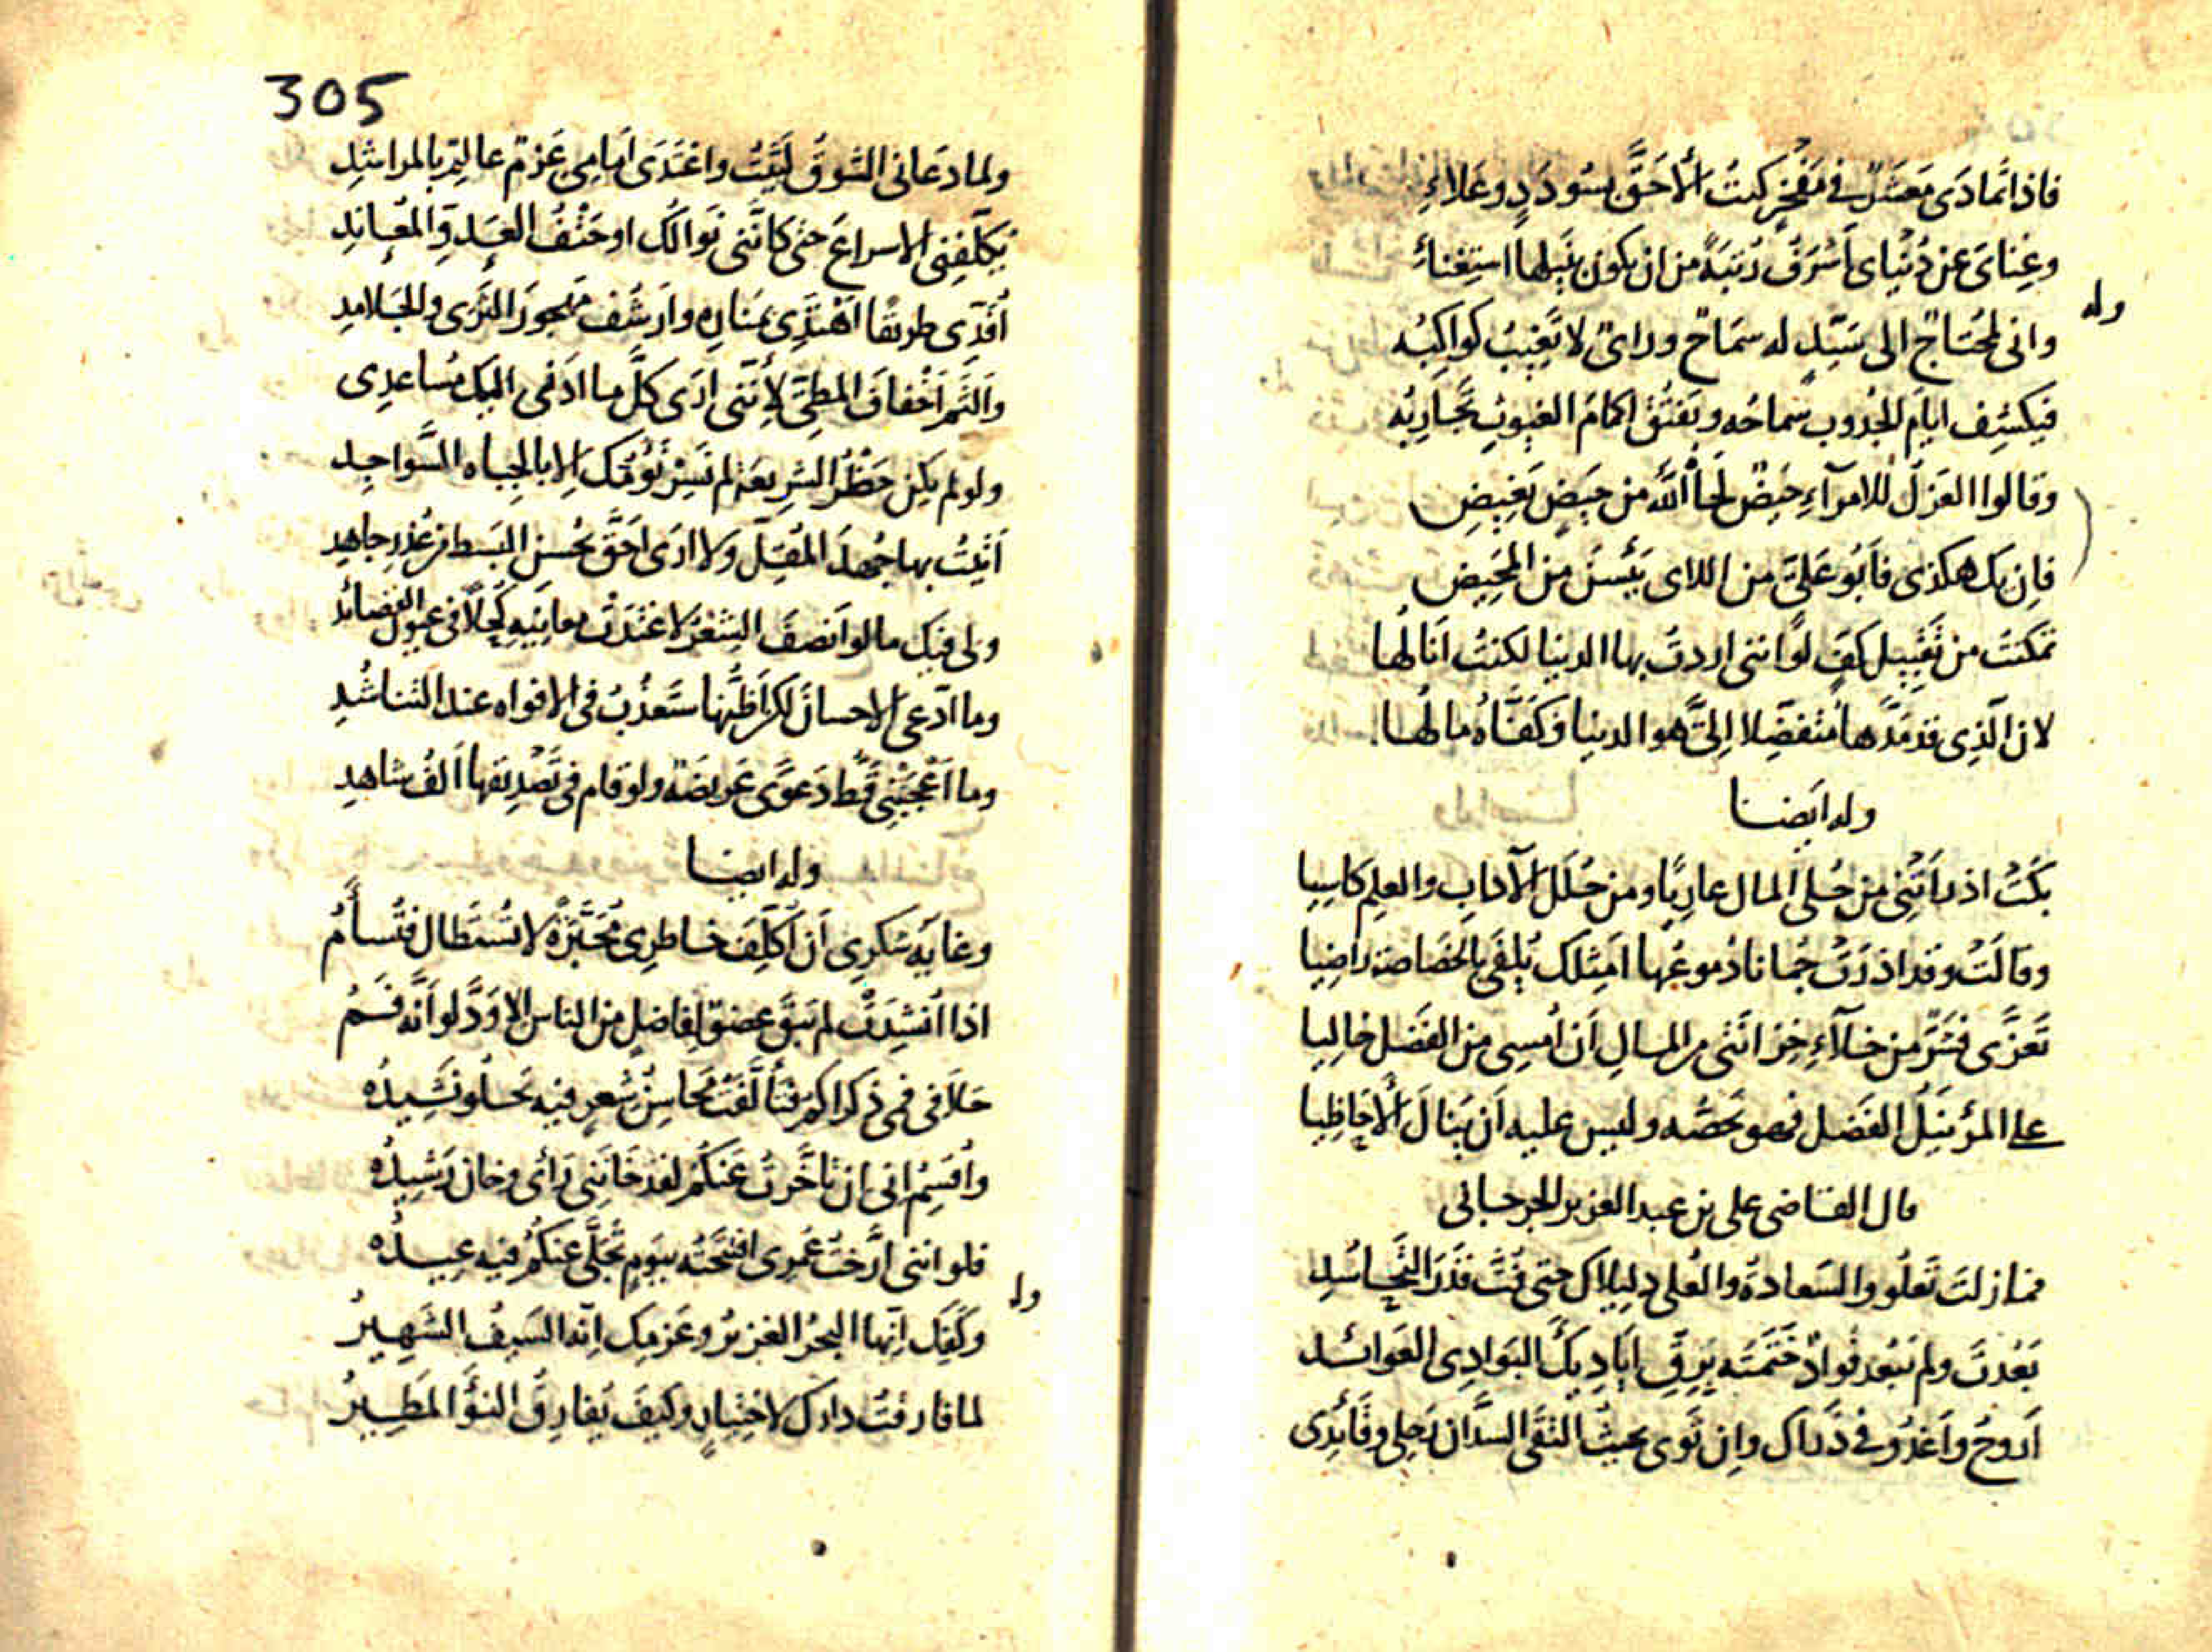 فاذا تمادى معشر في مفخر كنت الأحق بسودد وعلاء
وغناى عن دنياى أشرف رتبة من ان يكون بنيلها استغناء
وله
وانى لمحتاج الى سيد له سماح وراى لا تغيب كواكبه
فيكشف ايام الجدوب سماحه ويفتق اكمام الغيوب تجاربه
وقالوا العزل للامرآء حيض لحا الله من حيض بغيض
فان يك هكذى فابو على من اللاى يئسن من المحيض
تمكنت من تقبيل كف لو اننى اردت بها الدنيا لكنت انالها
لان الذى قد مدها متفضلا الى هو الدنيا وكفاه مالها
وله ايضا
بكت اذ رأتنى من حلى المال عاريا ومن حلل الآداب والعلم كاسيا
وقالت وقد اذرت جمانا دموعها امثلك يلفى بالخصاصة راضيا
تعزى فشر من خلآء خزانتى من المال ان امسى من الفضل خاليا
على المرء نيل الفضل فهو يخصه وليس عليه ان ينال الاحاظيا
قال القاضى على بن عبد العزيز الجرجانى
فما زلت تعلو والسعادة والعلى دليلاك حتى فت قدر التحاسد
بعدت ولم تبعد فواد ختمته برق اياديك البوادى العوائد
اروح واغدو فى ذراك وان ثوى بحيث التقى السدان رحلى وقائدى
305
ولما دعانى الشوق لبيت واغتدى امامى عزم عالم بالمراشد
يكلفنى الاسراع حتى كاننى نوالك او حتف العدو المعاند
أفدى طريقا اهتدى بمناره وارشف مهجور الثرى والجلامد
والثم اخفاف المطى لأننى ارى كل ما ادنى اليك مساعدى
ولو لم يكن حظر الشريعة لم نسر نؤمك الا بالجباه السواجد
أتيت بها جهد المقل ولا ارى احق بحسن البسط من عذر جاهد
ولى فيك ما لو انصف الشعر لاغتدت معانيه كحلا فى عيون القصائد
وما ادعى الاحسان لكن اظنها ستعذب فى الافواه عند التناشد
وما اعجبتنى قط دعوى عريضة ولو قام فى تصديقها الف شاهد
وله ايضا
وغاية شكرى أن اكلف خاطرى محبرة لا تستطال فتسأم
اذا انشدت لم يبق عضو لفاضل من الناس الا ود لو أنه فم
حلا فى فمى ذكراكم فتألفت محاسن شعر فيه يحلو نشيده
واقسم انى ان تأخرت عنكم لقد خاننى رأى وخان رشيده
فلو اننى ارخت عمرى افتتحته بيوم تجلى عنكم فيه عيده
وله
وكفك انها البحر الغزير وعزمك انه السيف الشهير
لما فارقت دارك لاختيار وكيف يفارق النوأ المطير